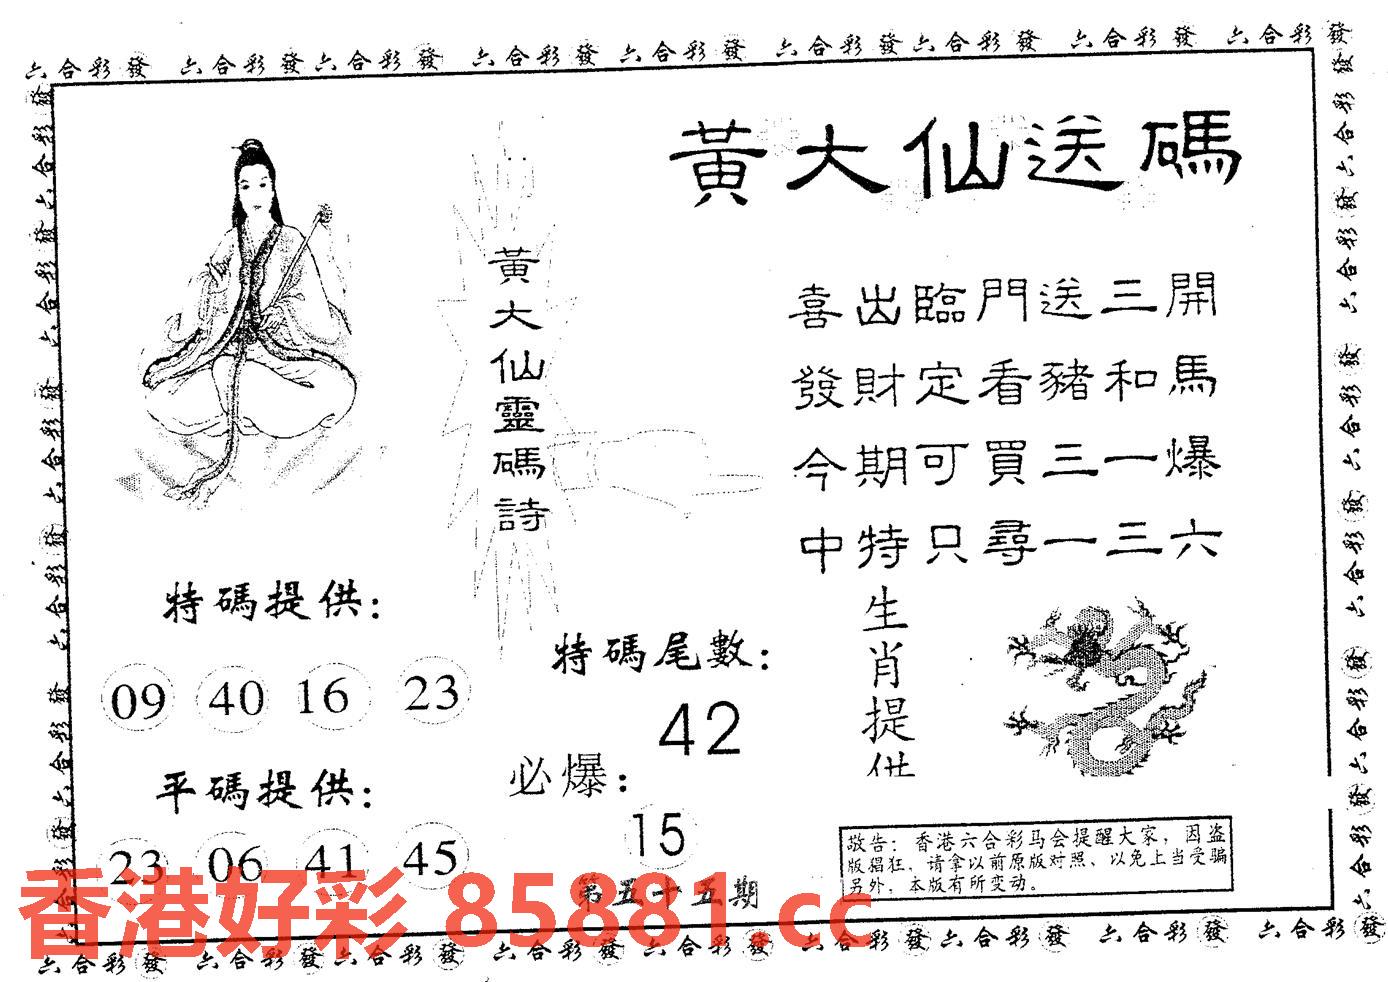 六合彩發 六合彩發 六合彩發 六合彩發 六合彩發 六合彩發 六合彩發 六合彩發 六合彩發
黃大仙送碼
黃大仙靈碼詩
喜出臨門送三開
發財定看豬和馬
今期可買三一爆
中特只尋一三六
特碼提供：
09 40 16 23
平碼提供：
23 06 41 45
特碼尾數：
42
必爆：
15
第五十五期
生肖提供
敬告：香港六合彩马会提醒大家，因盗
版猖狂，请拿以前原版对照、以免上当受骗
另外，本版有所变动。
香港好彩 85881 cc
六合彩發 六合彩發 六合彩發 六合彩發 六合彩發 六合彩發 六合彩發 六合彩發 六合彩發